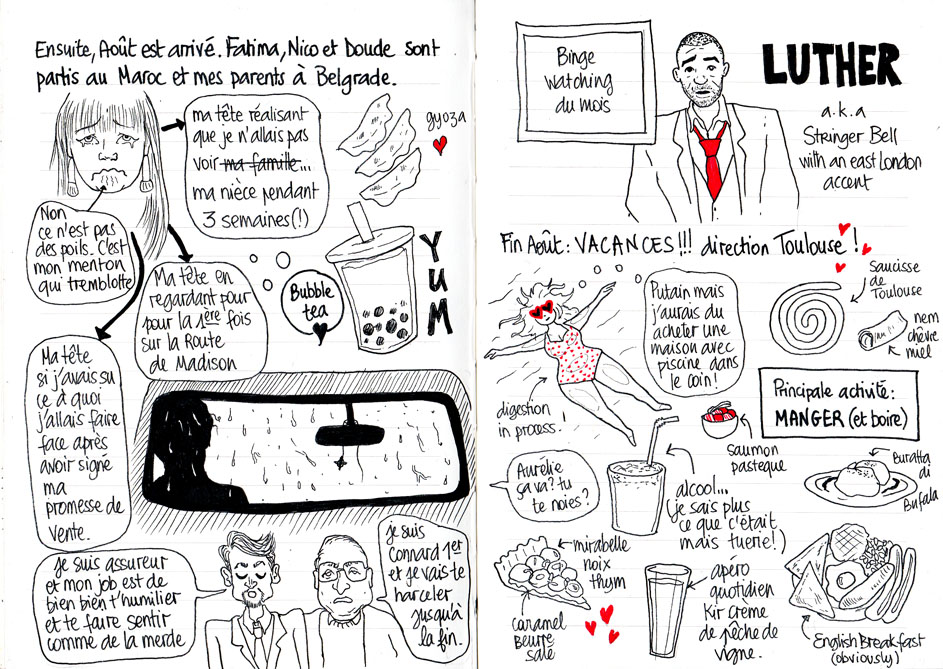 Ensuite, Août est arrivé. Fatima, Nico et Doude sont
partis au Maroc et mes parents à Belgrade.
ma tête réalisant
que je n'allais pas
voir ma famille...
ma nièce pendant
3 semaines (!)
gyoza
Non
ce n'est pas
des poils. C'est
mon menton
qui tremblotte
Ma tête en
regardant pour
pour la 1ère fois
sur la Route
de Madison
Bubble
tea
YUM
Ma tête
si j'avais su
ce à quoi
j'allais faire
face après
avoir signé
ma
promesse de
vente.
Je suis assureur
et mon job est de
bien bien t'humilier
et te faire sentir
comme de la merde
je suis
Connard 1er
et je vais te
harceler
jusqu'à
la fin.
Binge
watching
du mois
LUTHER
a.k.a
Stringer Bell
with an east London
accent
Fin Août : VACANCES !!! direction Toulouse !
Putain mais
j'aurais du
acheter une
maison avec
piscine dans
le coin !
Saucisse
de
Toulouse
nem
chèvre
miel
digestion
in process !
Principale activité :
MANGER (et boire)
saumon
pasteque
Buratta
di
Bufala
Aurélie
ça va ? tu
te noies ?
alcool...
(je sais plus
ce que c'était
mais tuerie !)
mirabelle
noix
thym
caramel
Beurre
salé
apéro
quotidien
Kir Crème
de pêche de
vigne.
English Breakfast
(obviously)